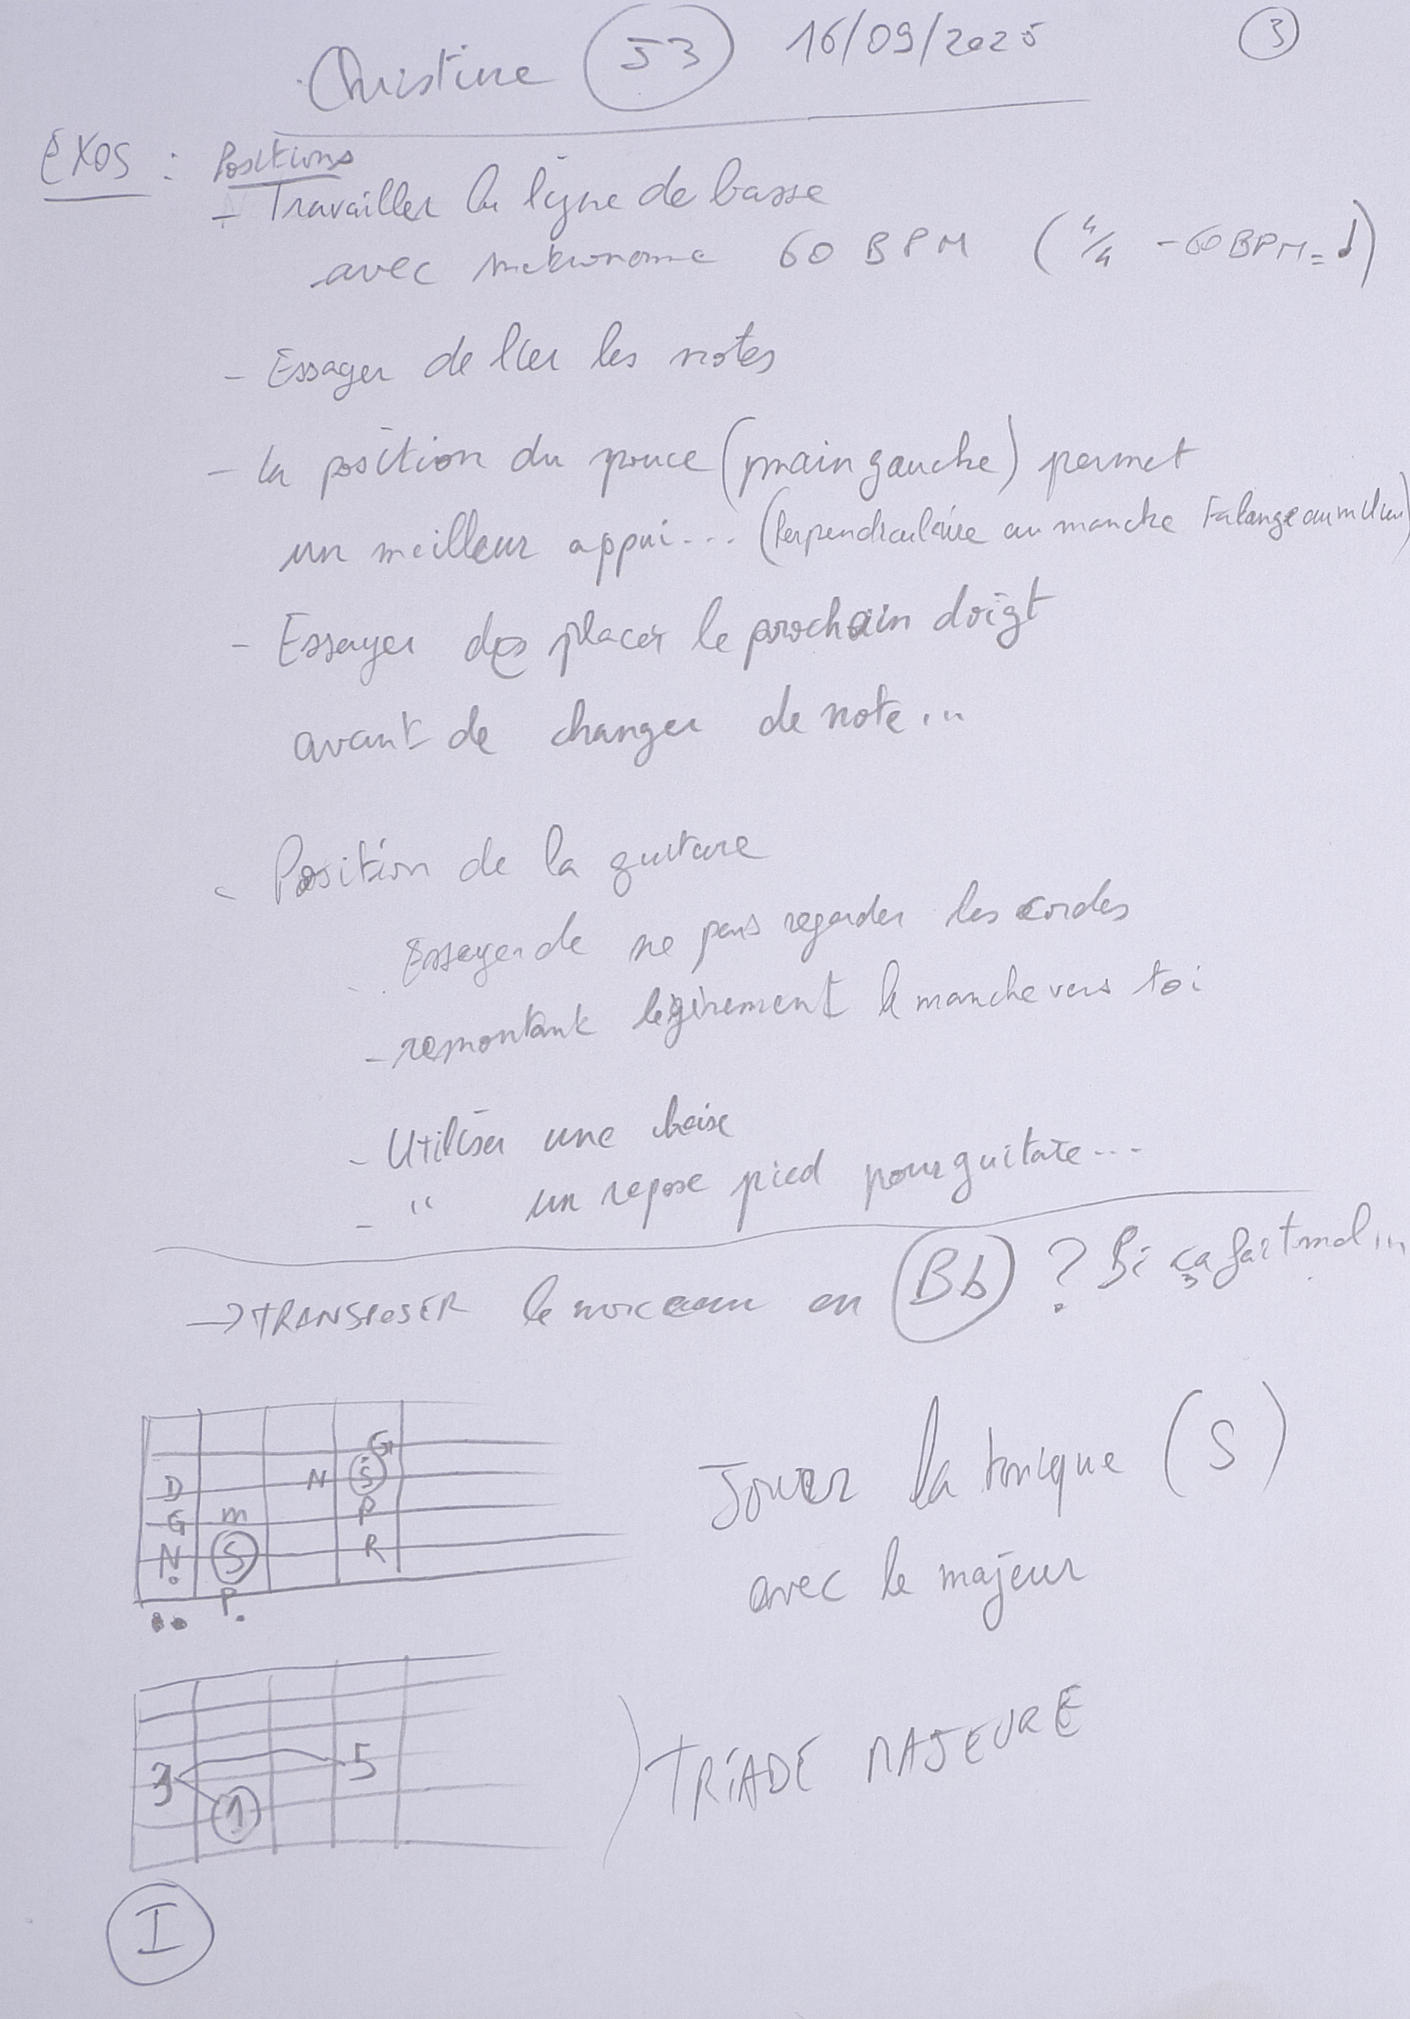 Christine 53 16/09/2025 3
EXOS : Positions
- Travailler la ligne de basse
avec metronome 60 BPM (4/4 - 60 BPM = ♩)
- Essayer de lier les notes
- la position du pouce (main gauche) permet
un meilleur appui... (perpendiculaire au manche Falange au milieu)
- Essayer de placer le prochain doigt
avant de changer de note...
- Position de la guitare
- Essayer de ne pas regarder les cordes
- remontant légèrement le manche vers toi
- Utiliser une chaise
- " un repose pied pour guitare...
→ TRANSPOSER le morceau en Bb ? Si ça fait mal...
G
D N S
G m P
N S R
P
Jouer la tonique (S)
avec le majeur
3 5
1
TRIADE MAJEURE
I